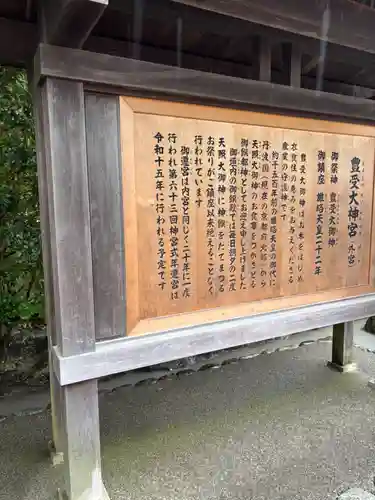 豊受大神宮（外宮）
御祭神　豊受大御神
御鎮座　雄略天皇二十二年
豊受大御神はお米をはじめ
衣食住の恵みをお与えくださる
産業の守護神です
約千五百年前の雄略天皇の御代に
丹波国（現在の京都府北部）から
天照大御神のお食事をつかさどる
御饌都神としてお迎え申し上げました
御垣内の御饌殿では毎日朝夕の二度
天照大御神に神饌をたてまつる
お祭りがご鎮座以来絶えることなく
行われています
御遷宮は内宮と同じく二十年に一度
行われ第六十三回神宮式年遷宮は
令和十五年に行われる予定です